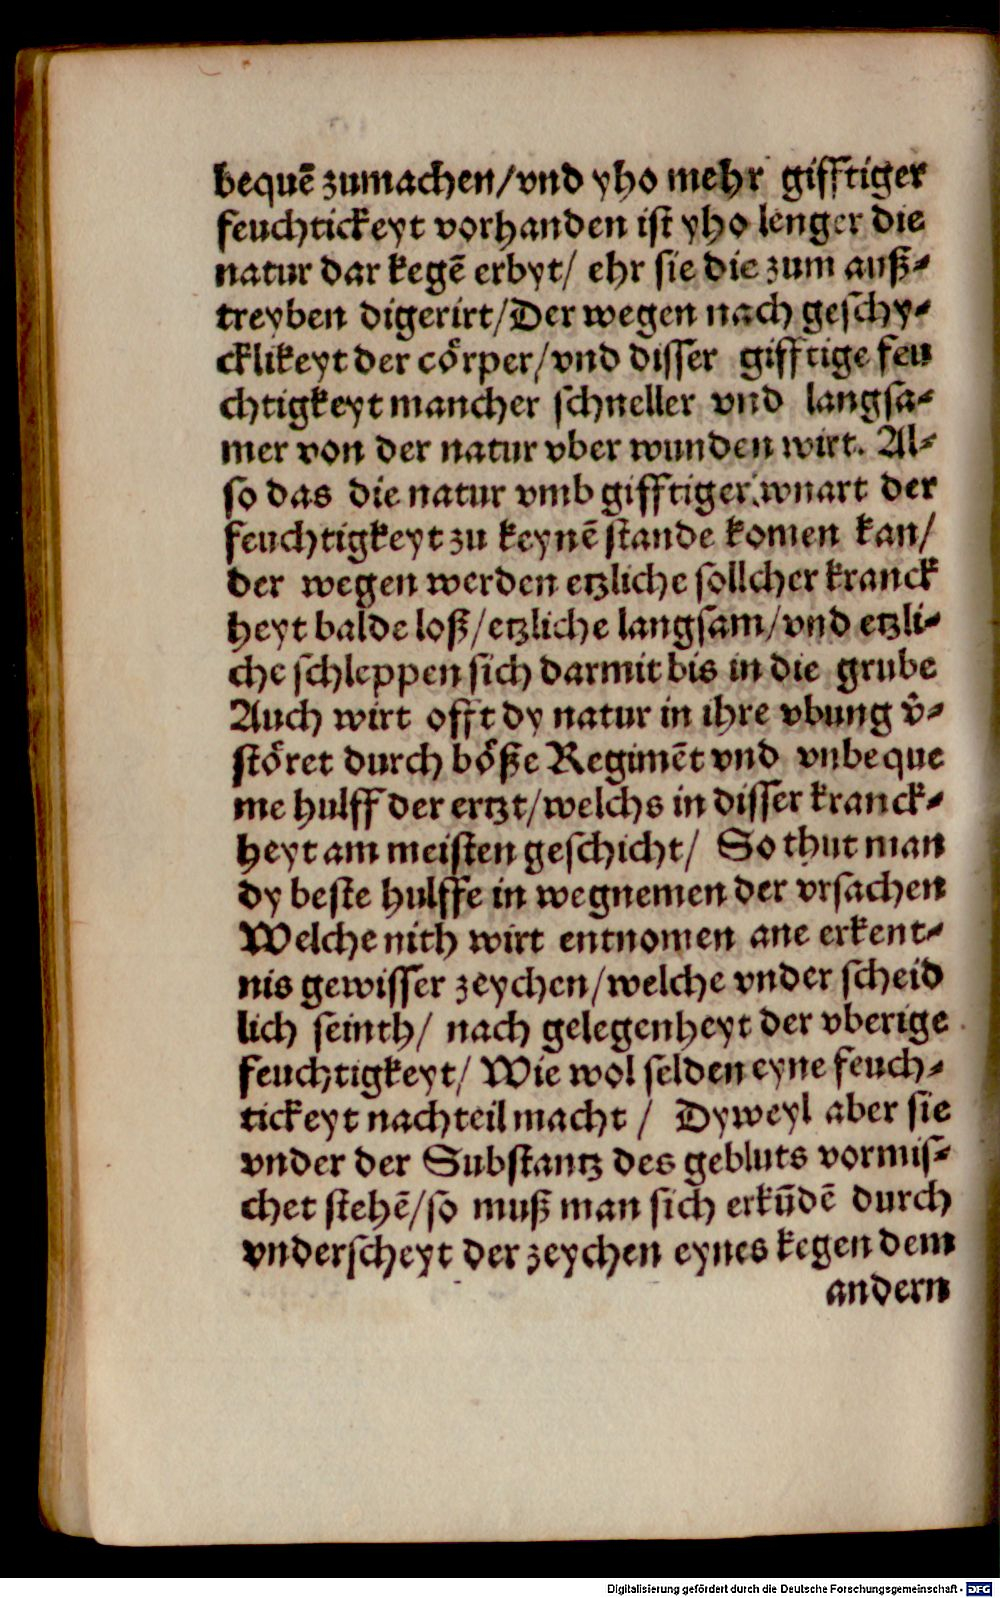 bequẽ zumachen/vnd yho mehr gifftiger
feuchtickeyt vorhanden ist yho lenger die
natur dar kegẽ erbyt/ ehr sie die zum auß-
treyben digerirt/Der wegen nach geschy-
cklikeyt der cörper/vnd disser gifftige feu
chtigkeyt mancher schneller vnd langsa-
mer von der natur vber wunden wirt. Al-
so das die natur vmb gifftiger wnart der
feuchtigkeyt zu keynẽ stande komen kan/
der wegen werden etzliche sollcher kranck
heyt balde loß/etzliche langsam/vnd etzli-
che schleppen sich darmit bis in die grube
Auch wirt offt dy natur in ihre vbung v̓-
störet durch böße Regimẽt vnd vnbeque
me hulff der ertzt/welchs in disser kranck-
heyt am meisten geschicht/ So thut man
dy beste hulffe in wegnemen der vrsachen
Welche nith wirt entnomen ane erkent-
nis gewisser zeychen/welche vnder scheid
lich seinth/ nach gelegenheyt der vberige
feuchtigkeyt/ Wie wol selden eyne feuch-
tickeyt nachteil macht / Dyweyl aber sie
vnder der Substantz des gebluts vormis-
chet stehẽ/so muß man sich erkũdẽ durch
vnderscheyt der zeychen eynes kegen dem
andern
Digitalisierung gefördert durch die Deutsche Forschungsgemeinschaft - DFG